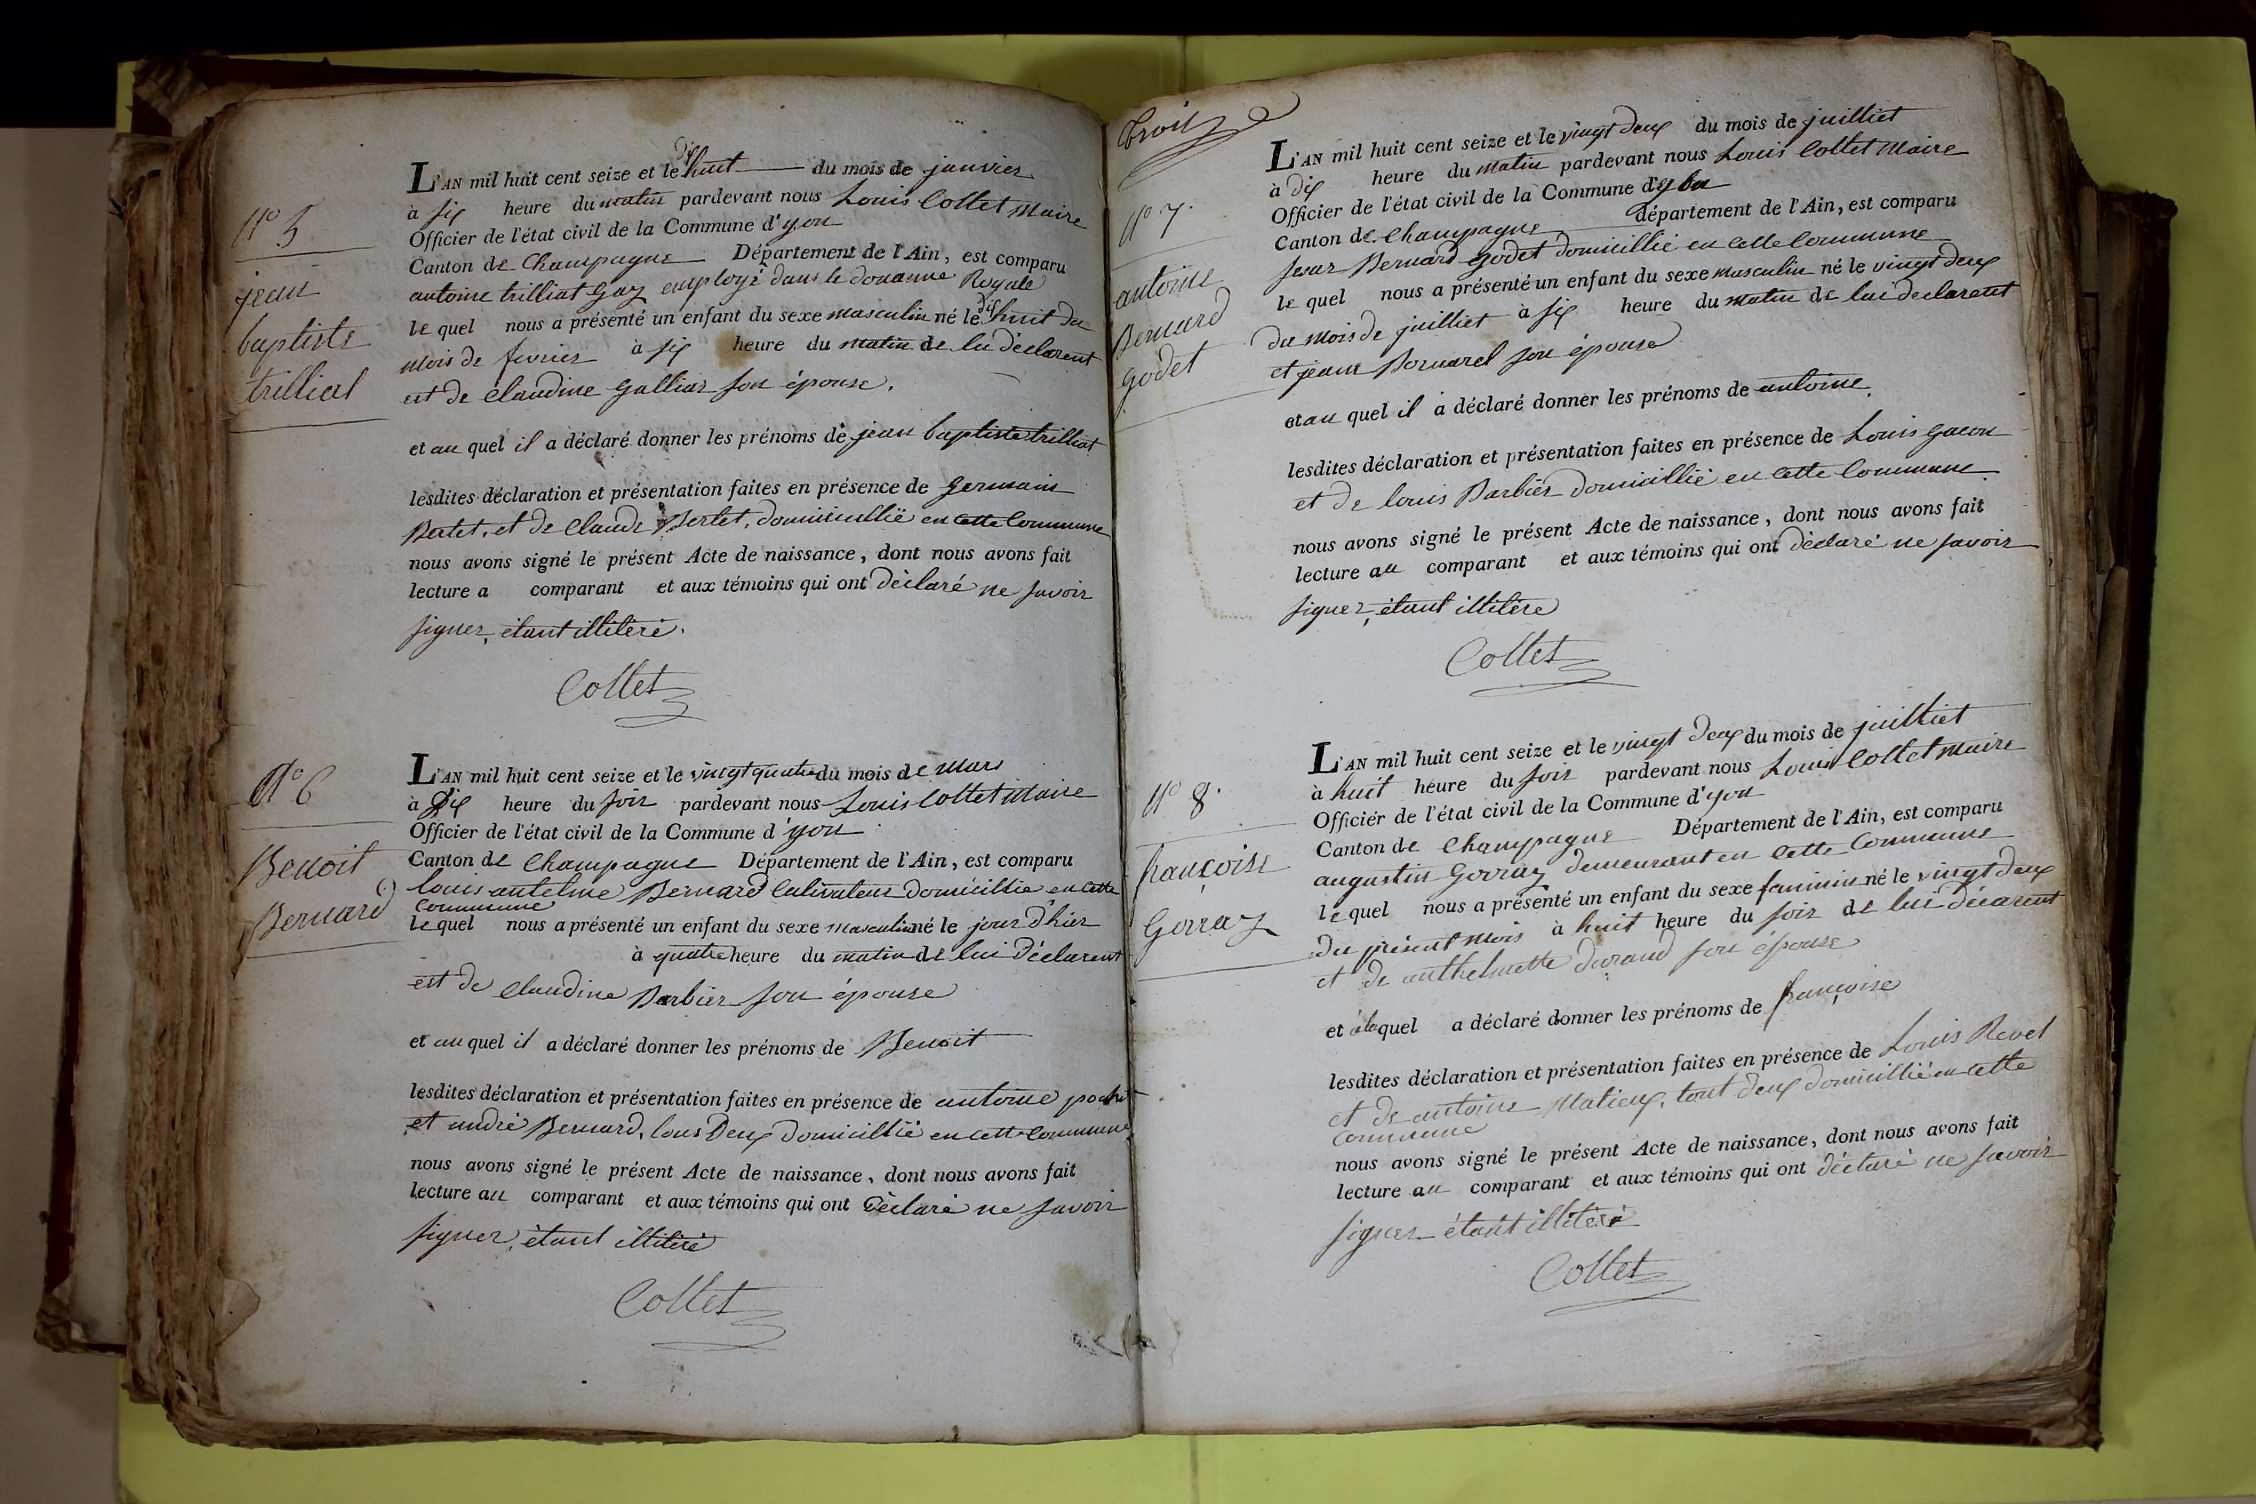 N° 5
jean
baptiste
trilliat
L'AN mil huit cent seize et le dix huit du mois de janvier
à six heure du matin pardevant nous Louis Collet Maire
Officier de l'état civil de la Commune d'yon
Canton de Champagne Département de l'Ain, est comparu
antoine trilliat Gay employé dans le douanne Royale
le quel nous a présenté un enfant du sexe masculin né le dix huit du
mois de fevrier à six heure du matin de lui déclarent
est de Claudine Galliar son épouse.
et au quel il a déclaré donner les prénoms de jean baptiste trilliat
lesdites déclaration et présentation faites en présence de Germain
Bertet, et de Claude Bertet, domicillié en cette Commune
nous avons signé le présent Acte de naissance, dont nous avons fait
lecture a comparant et aux témoins qui ont déclaré ne savoir
signer, étant illiteré.
Collet
N° 6
Benoit
Bernard
L'AN mil huit cent seize et le vingt quatre du mois de Mars
à Dix heure du soir pardevant nous Louis Collet Maire
Officier de l'état civil de la Commune d'yon
Canton de Champagne Département de l'Ain, est comparu
louis antelme Bernard Cultivateur Domicillié en cette
Commune
le quel nous a présenté un enfant du sexe masculin né le jour d'hier
à quatre heure du matin de lui Déclarent
est de Claudine Barbier son épouse
et au quel il a déclaré donner les prénoms de Benoit
lesdites déclaration et présentation faites en présence de antoine
et andré Bernard, tous Deux domicillié en cette Commune
nous avons signé le présent Acte de naissance, dont nous avons fait
lecture au comparant et aux témoins qui ont déclaré ne savoir
signer, étant illiteré
Collet
trois
N° 7
antoine
Bernard
Godet
L'AN mil huit cent seize et le vingt deux du mois de juilliet
à dix heure du matin pardevant nous Louis Collet Maire
Officier de l'état civil de la Commune d'yon
Canton de Champagne département de l'Ain, est comparu
Bernard Godet domicillié en cette Commune
le quel nous a présenté un enfant du sexe masculin né le vingt deux
du mois de juilliet à six heure du matin de lui declaretet
et jeane Bornarel son épouse
et au quel il a déclaré donner les prénoms de antoine
lesdites déclaration et présentation faites en présence de Louis Gacon
et de louis Barbier domicillié en cette Commune
nous avons signé le présent Acte de naissance, dont nous avons fait
lecture au comparant et aux témoins qui ont déclaré ne savoir
signer, étant illitére
Collet
N° 8
françoise
Gorraz
L'AN mil huit cent seize et le vingt deux du mois de juilliet
à huit heure du soir pardevant nous Louis Collet Maire
Officier de l'état civil de la Commune d'yon
Canton de Champagne Département de l'Ain, est comparu
augustin Gorraz demeurant en cette Commune
le quel nous a présenté un enfant du sexe feminin né le vingt deux
du présent mois à huit heure du soir de lui décarent
et de anthelmette durand son épouse
et à la quel a déclaré donner les prénoms de françoise
lesdites déclaration et présentation faites en présence de Louis Revel
et de antoine Matieux, tout deux domicillié en cette
Commune
nous avons signé le présent Acte de naissance, dont nous avons fait
lecture au comparant et aux témoins qui ont déclaré ne savoir
signer étant illiteré
Collet